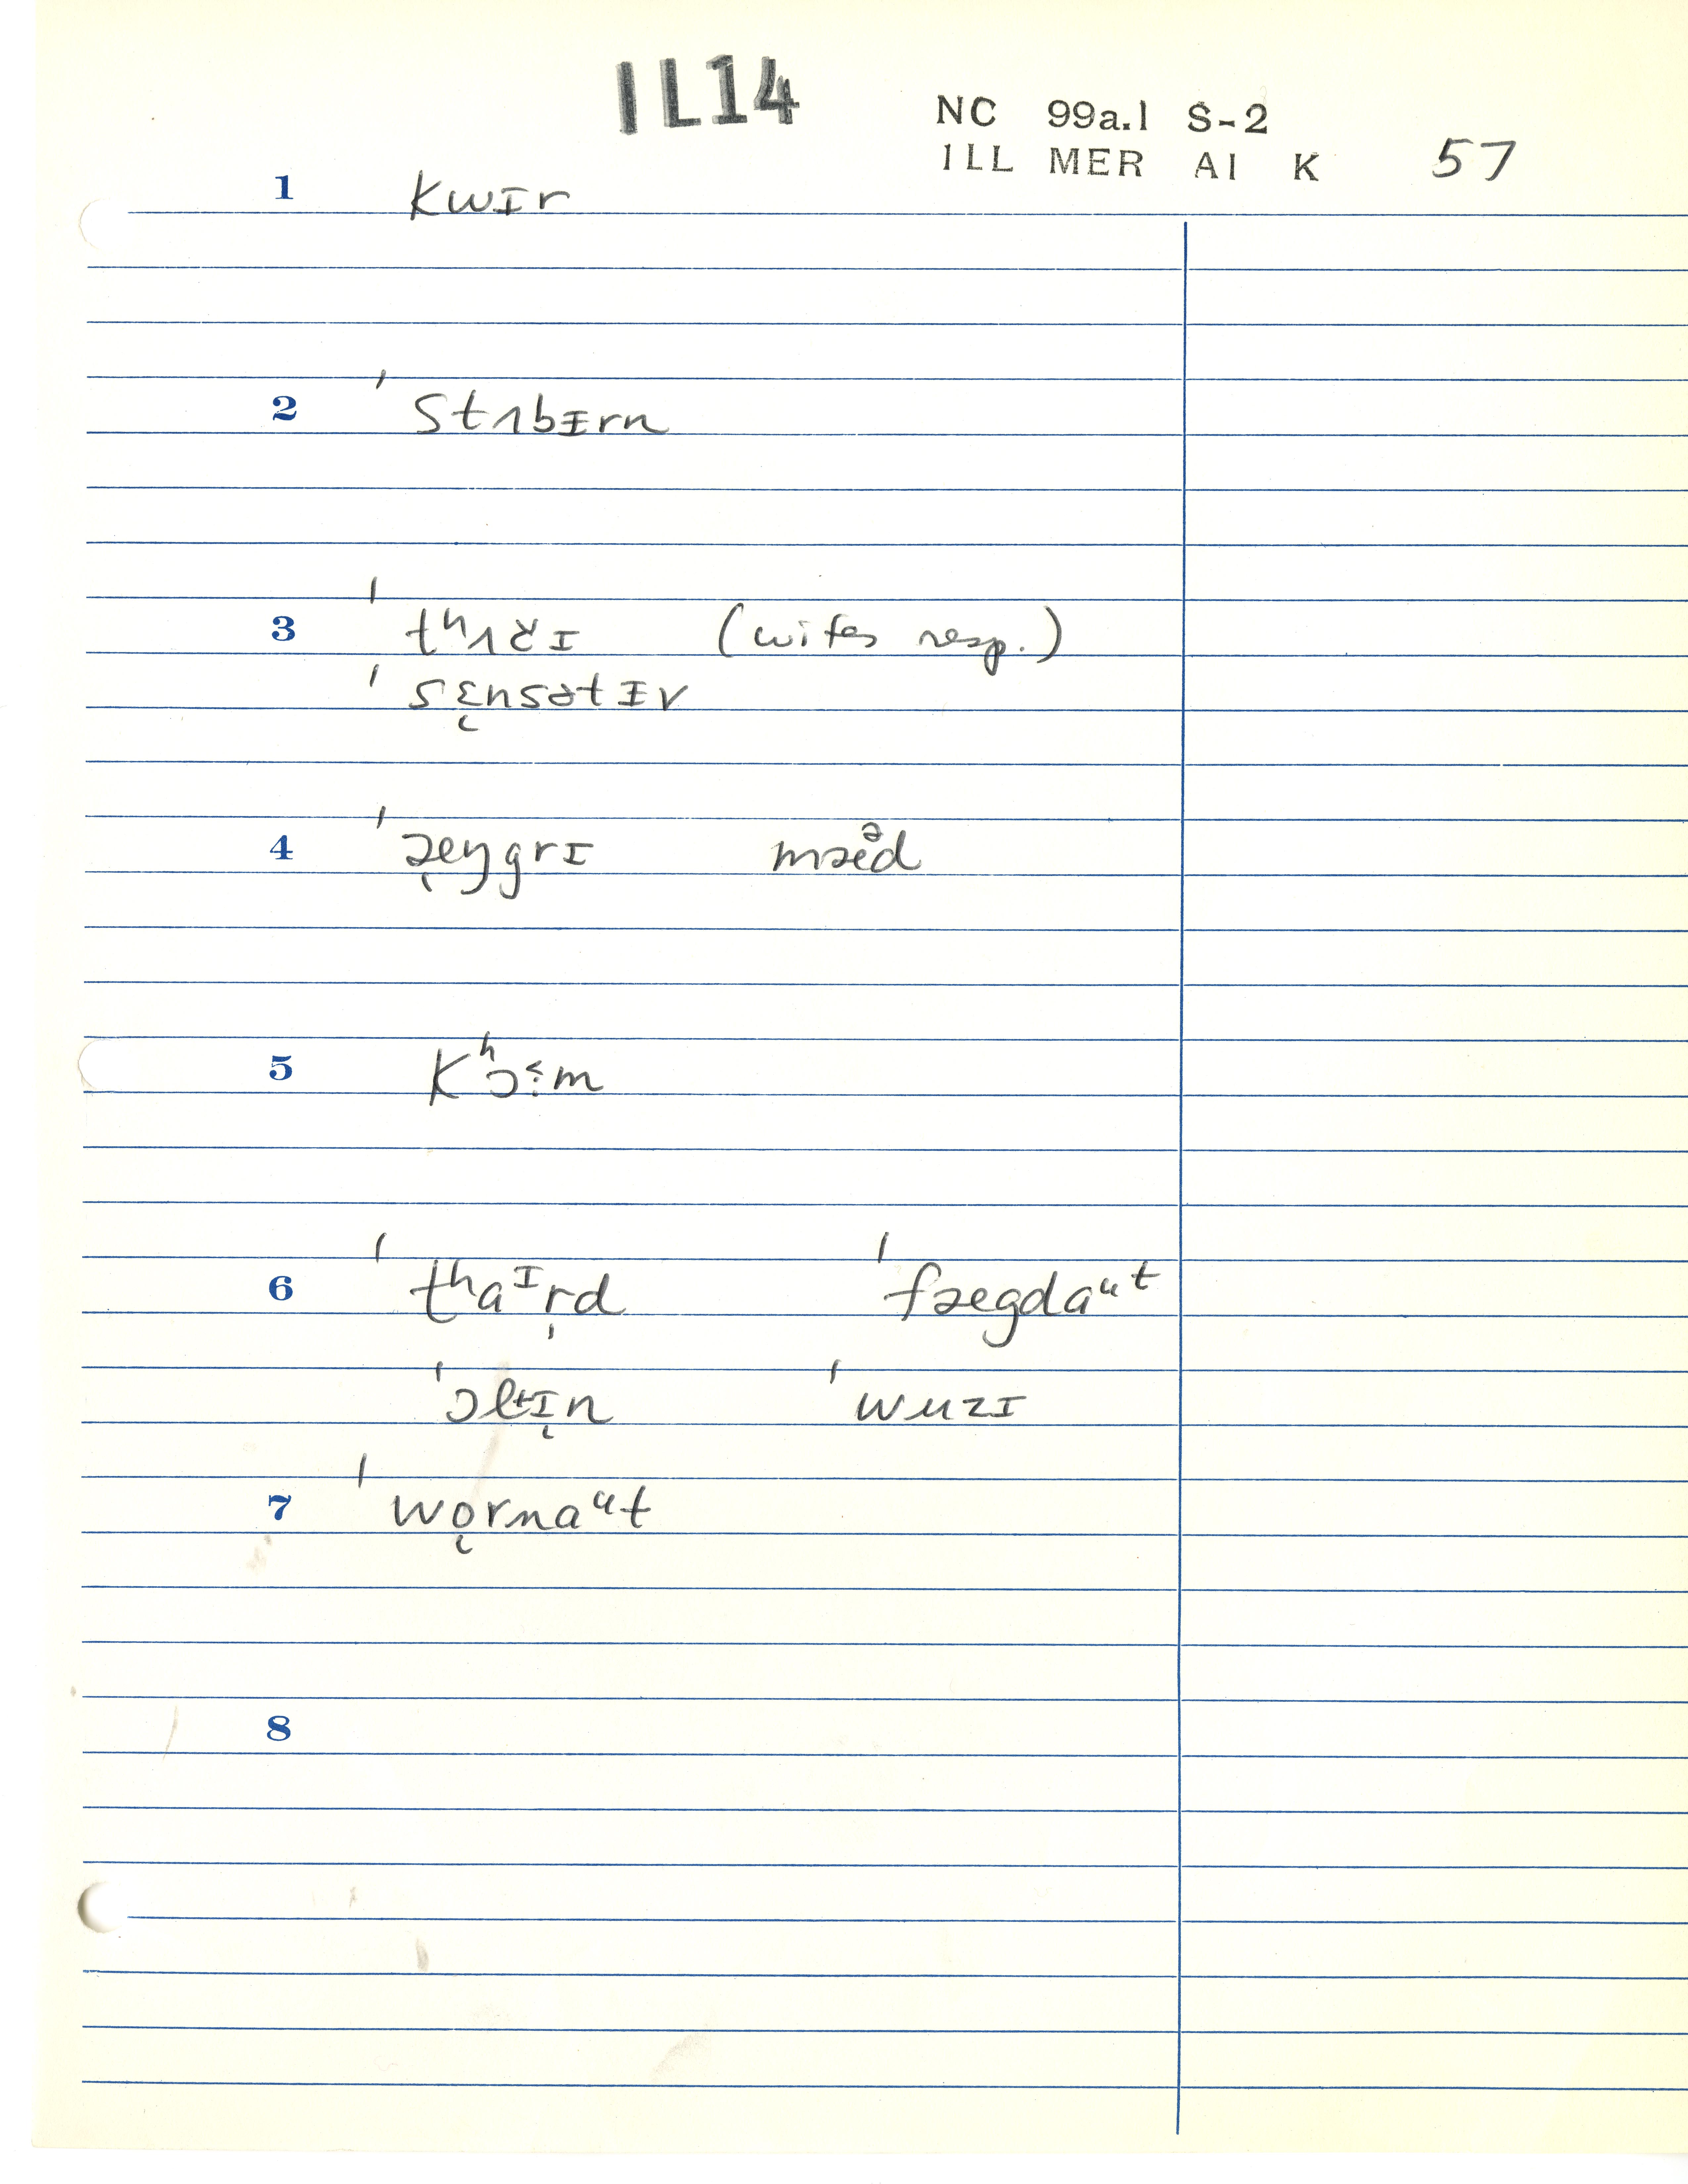 IL14
NC 99a.1 S-2
ILL MER AI K 57
1 kwɪr
2 ˈstʌbɪrn
3 ˈtʰʌtʃɪ (wifes resp.)
ˈsɛ̜nsətɪv
4 ˈæ̩ŋgrɪ mæᵊd
5 kʰɔ˂˙m
6 ˈtʰaᶦr̩d ˈfægdaᵘt
ˈɔltɪ̜n ˈwuzɪ
7 ˈwo̜rnaᵘt
8